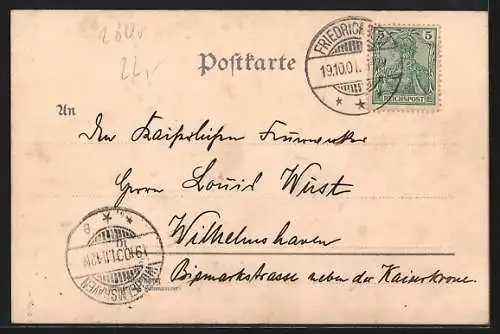 28Uv
22,-
Postkarte
FRIEDRICH
19.10.01.
5 5
REICHSPOST
An
Den Kaiserlichen
Herrn Louis Wüst
Wilhelmshaven
Bismarkstrasse neben der Kaiserkrone.
WILHELMSHAVEN
19.10.01.